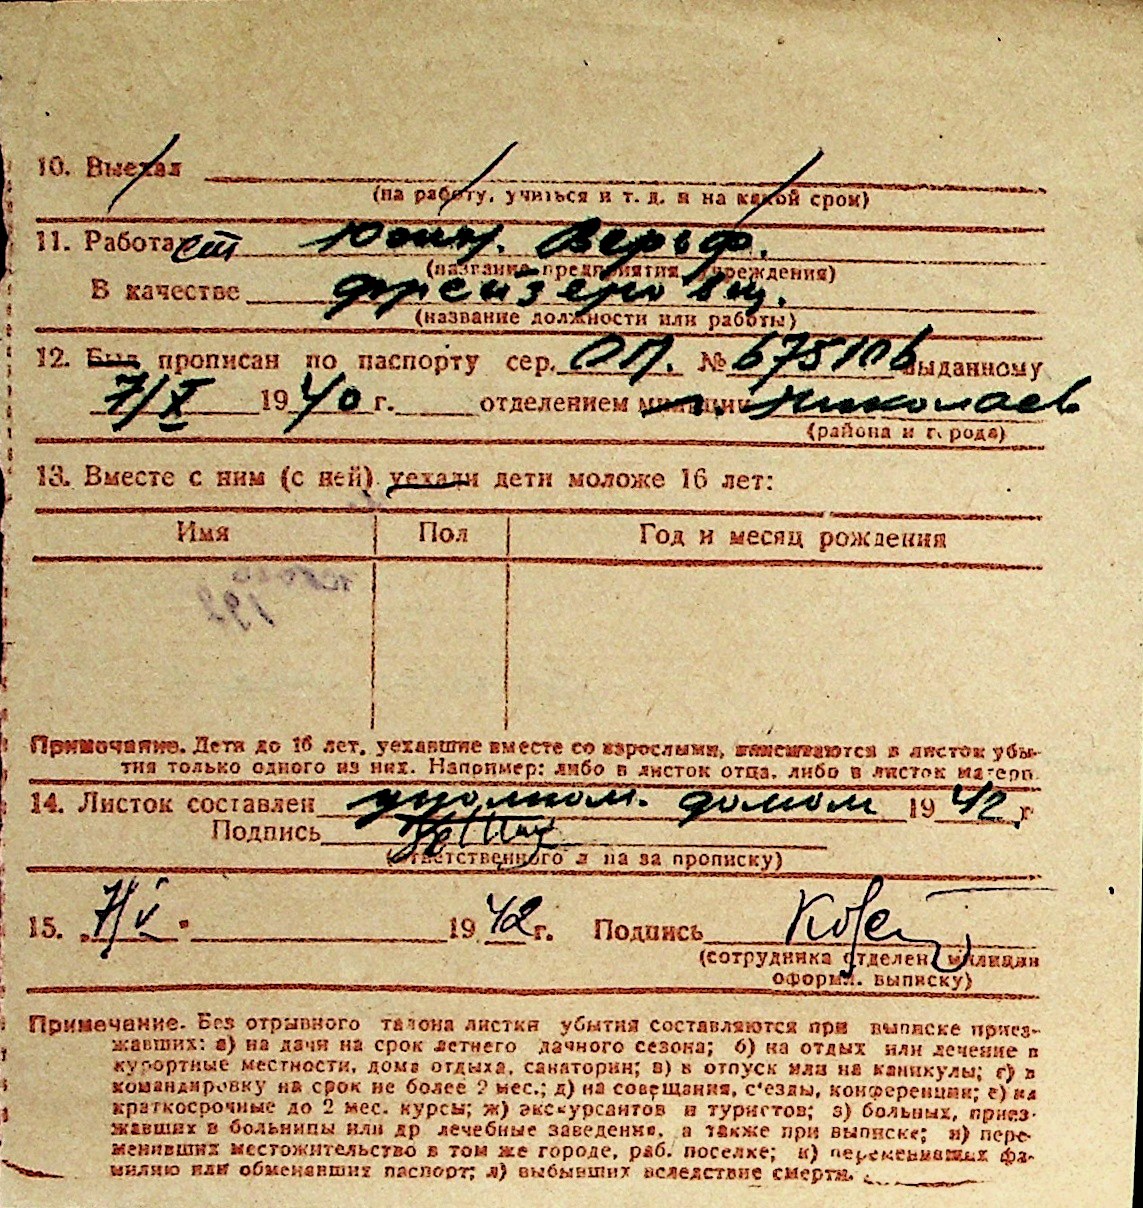 10. Выехал
(на работу, учиться и т. д. и на какой срок)
11. Работает Южн. Верф.
(название предприятия учреждения)
В качестве фрейзеровщ.
(название должности или работы)
12. Был прописан по паспорту сер. ОП. № 675106 выданному
7/X 1940 г. отделением милиции г. Николаев
(района и города)
13. Вместе с ним (с ней) уехали дети моложе 16 лет:
Имя Пол Год и месяц рождения
Примечание. Дети до 16 лет, уехавшие вместе со взрослыми, вписываются в листок убы-
тия только одного из них. Например: либо в листок отца, либо в листок матери.
14. Листок составлен уполном. домом 1942 г
Подпись
(ответственного л на за прописку)
15. „7/V" 1942 г. Подпись
(сотрудника отделен. милиции
оформ. выписку)
Примечание. Без отрывного талона листки убытия составляются при выписке приез-
жавших: а) на дачи на срок летнего дачного сезона; б) на отдых или лечение в
курортные местности, дома отдыха, санатории; в) в отпуск или на каникулы; г) в
командировку на срок не более 2 мес.; д) на совещания, с'езды, конференции; е) на
краткосрочные до 2 мес. курсы; ж) экскурсантов и туристов; з) больных, приез-
жавших в больницы или др лечебные заведения, а также при выписке; и) пере-
менивших местожительство в том же городе, раб. поселке; к) переменивших фа-
милию или обменавших паспорт; л) выбывших вследствие смерти.